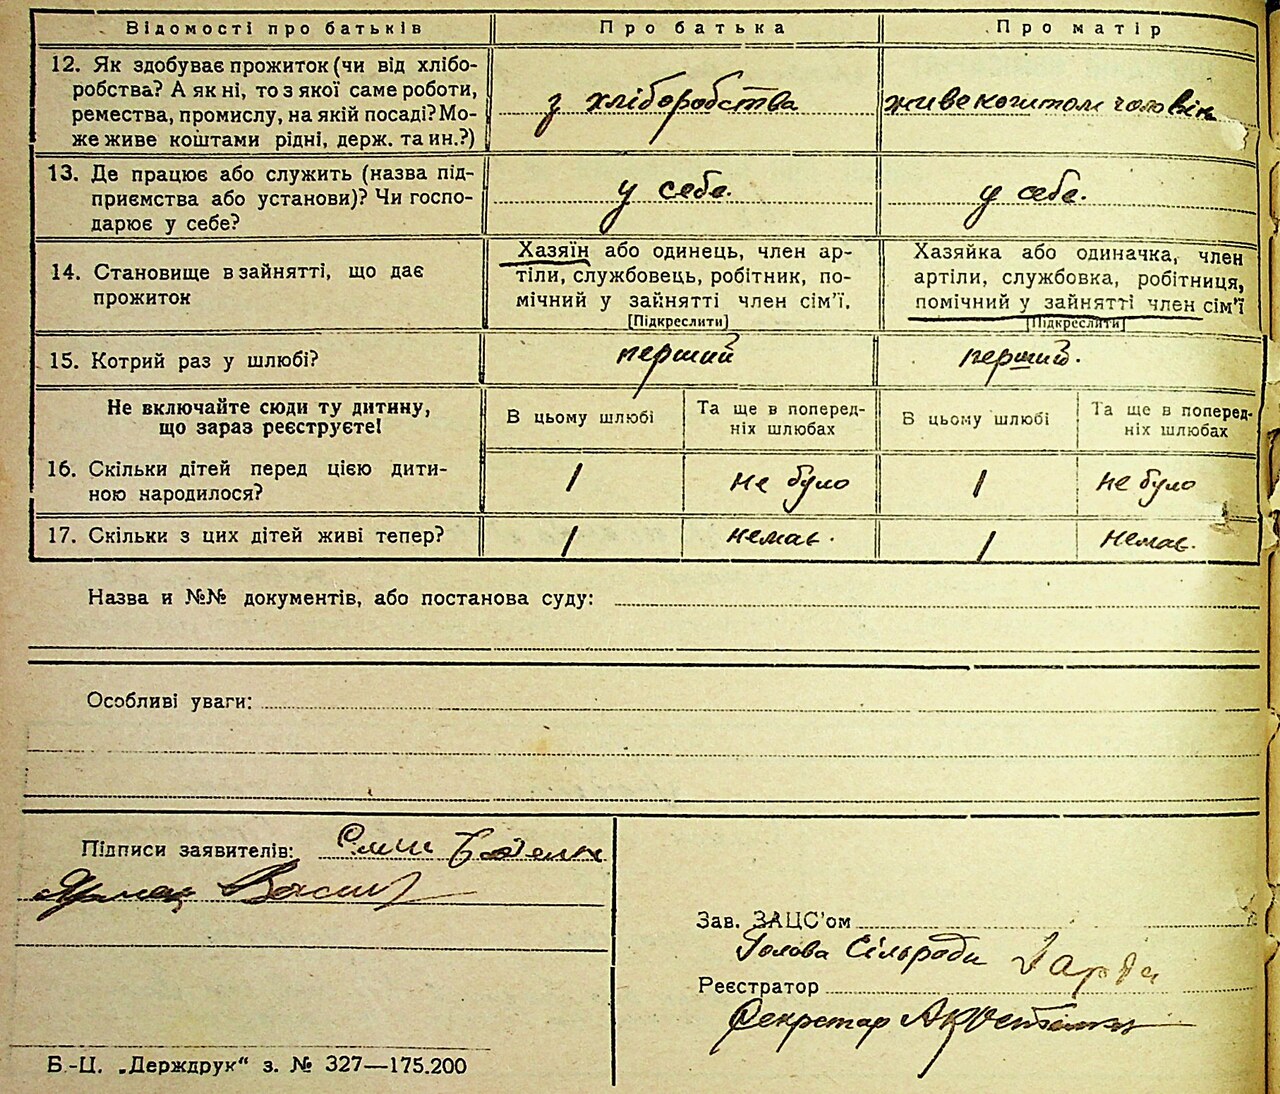 Відомості про батьків Про батька Про матір
12. Як здобуває прожиток (чи від хлібо-
робства? А як ні, то з якої саме роботи,
ремества, промислу, на якій посаді? Мо-
же живе коштами рідні, держ. та ин.?)
з хліборобства
живе коштом чоловік
13. Де працює або служить (назва під-
приємства або установи)? Чи госпо-
дарює у себе?
у себе.
у себе.
14. Становище в зайнятті, що дає
прожиток
Хазяїн або одинець, член ар-
тіли, службовець, робітник, по-
мічний у зайнятті член сім'ї.
[Підкреслити]
Хазяйка або одиначка, член
артіли, службовка, робітниця,
помічний у зайнятті член сім'ї
[Підкреслити]
15. Котрий раз у шлюбі?
перший
перший.
Не включайте сюди ту дитину,
що зараз реєструєте!
В цьому шлюбі
Та ще в поперед-
ніх шлюбах
В цьому шлюбі
Та ще в поперед-
ніх шлюбах
16. Скільки дітей перед цією дити-
ною народилося?
1 не було 1 не було
17. Скільки з цих дітей живі тепер?
1 немає. 1 немає.
Назва и №№ документів, або постанова суду:
Особливі уваги:
Підписи заявителів:
Зав. ЗАЦС'ом
Голова Сільради
Реєстратор
Секретар
Б.-Ц. „Держдрук" з. № 327—175.200